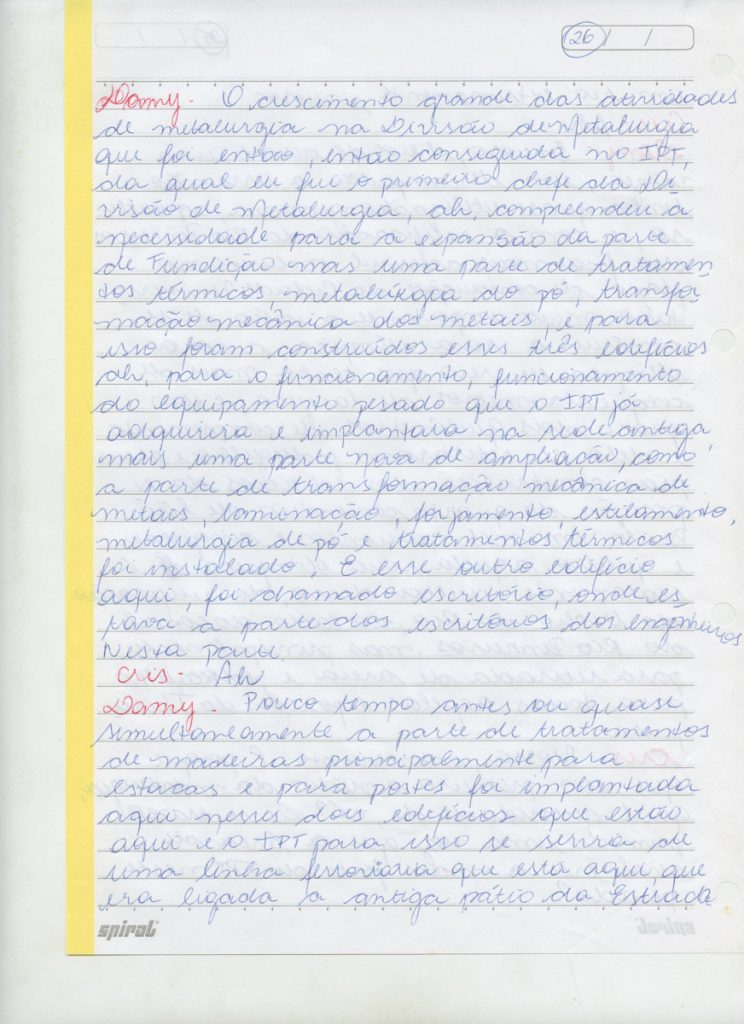 26 / /
Damy. O crescimento grande das atividades
de metalurgia na Divisão de Metalurgia
que foi então, então conseguida no IPT,
da qual eu fui o primeiro chefe da Di
visão de Metalurgia, ah, compreendeu à
necessidade para a expansão da parte
de Fundição mas uma parte de tratamen
tos térmicos, metalúrgia do pó, transfor
mação mecânica dos metais, e para
isso foram construídos esses três edifícios
ah, para o funcionamento, funcionamento
do equipamento pesado que o IPT já
adquirira e implantara na sede antiga
mais uma parte nova de ampliação, como
a parte de transformação mecânica de
metais, laminação, forjamento, estilamento,
metalurgia de pó e tratamentos térmicos
foi instalado. E esse outro edifício
aqui, foi chamado escritório, onde es
tava a parte dos escritórios dos engenheiros
Nesta parte.
Cris. Ah
Damy. Pouco tempo antes ou quase
simultaneamente a parte de tratamentos
de madeiras principalmente para
estacas e para postes foi implantada
aqui nesses dois edifícios que estão
aqui e o IPT para isso se servia de
uma linha ferroviária que está aqui que
era ligada a antiga pátio da Estrada
spiral